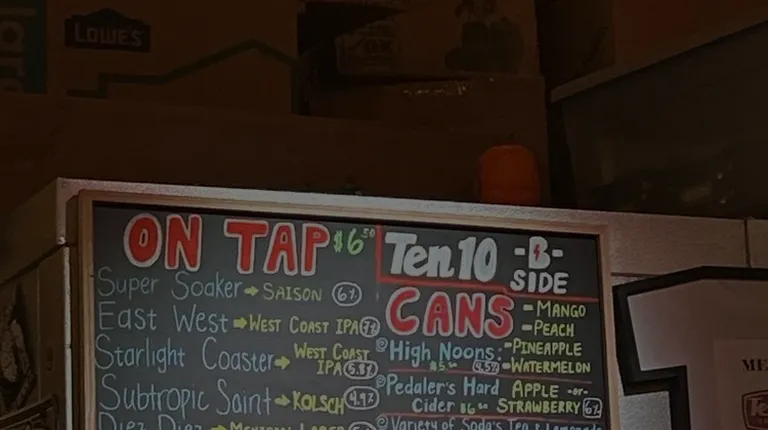 LOWE'S
ON TAP $6.50
Super Soaker → SAISON 6%
East West → WEST COAST IPA 7%
Starlight Coaster → WEST COAST IPA 5.8%
Subtropic Saint → KOLSCH 4.9%
Diez Diez → MEXICAN LAGER
Ten10 -B- SIDE
CANS
High Noons: $5.50 4.5%
-MANGO
-PEACH
-PINEAPPLE
-WATERMELON
Pedaler's Hard Cider $6.50 APPLE -or- STRAWBERRY 6%
Variety of Soda's Tea & Lemonade